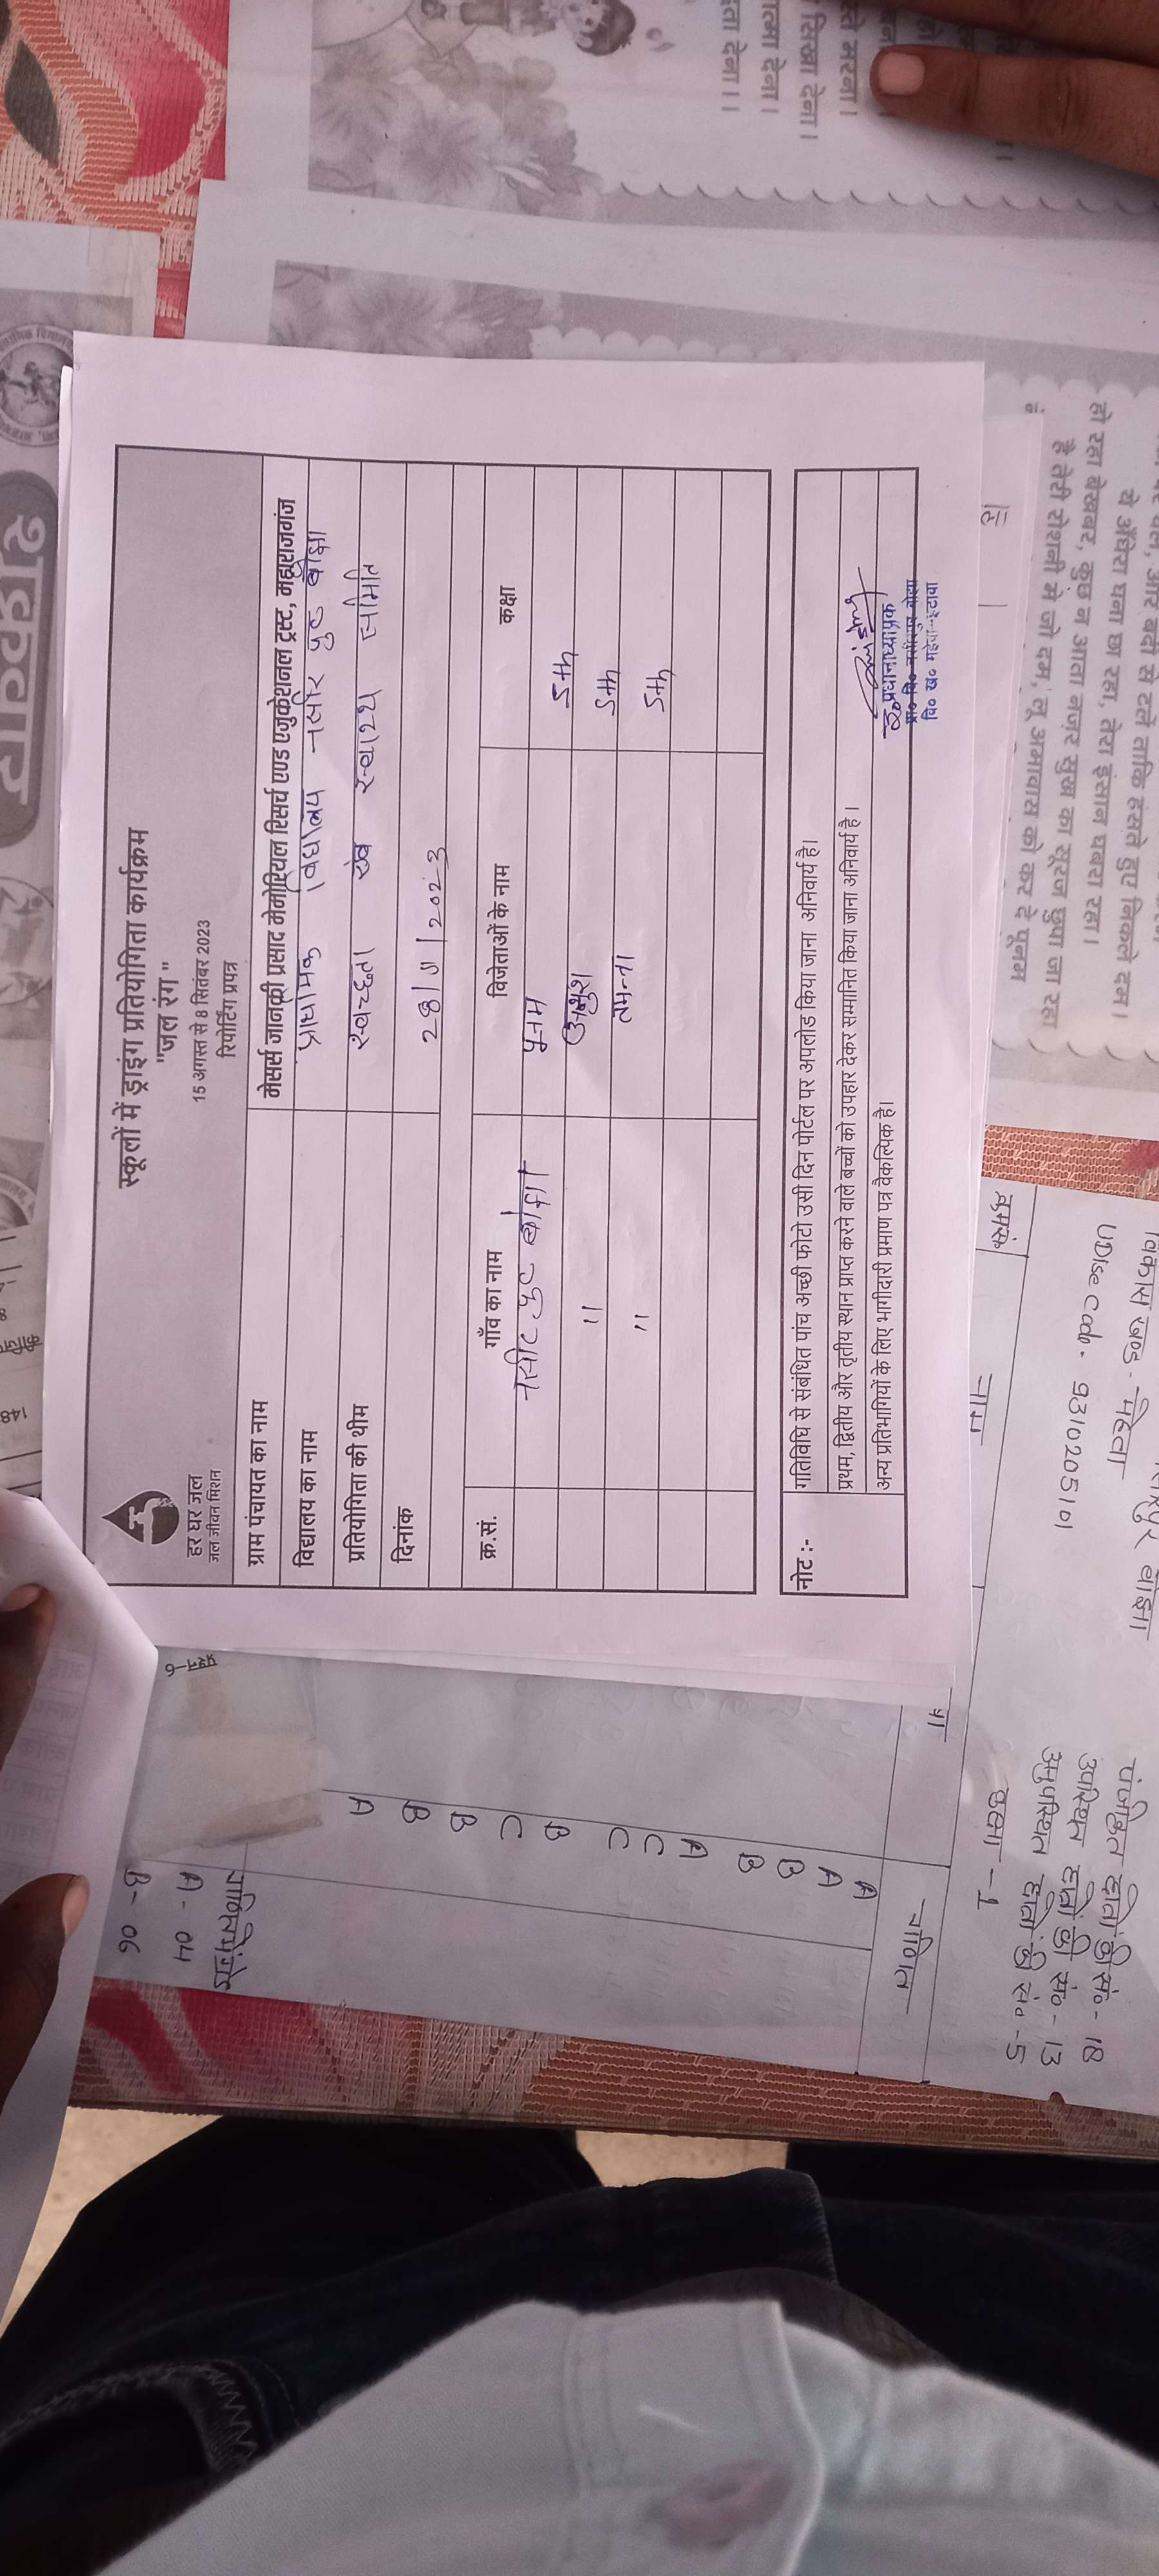 स्कूलों में ड्राइंग प्रतियोगिता कार्यक्रम
"जल रंग"
15 अगस्त से 8 सितंबर 2023
रिपोर्टिंग प्रपत्र
हर घर जल
जल जीवन मिशन
ग्राम पंचायत का नाम मेसर्स जानकी प्रसाद मेमोरियल रिसर्च एण्ड एजुकेशनल ट्रस्ट, महाराजगंज
विद्यालय का नाम प्राथमिक विधालय नसीर पुर बोझा
प्रतियोगिता की थीम स्वच्छता एंव स्वास्थ समिति
दिनांक 28/ /2023
क्र.सं. गाँव का नाम विजेताओं के नाम कक्षा
नसीर पुर बोझा पूनम 5th
" 5th
" तमन्ना 5th
नोट :- गतिविधि से संबंधित पांच अच्छी फोटो उसी दिन पोर्टल पर अपलोड किया जाना अनिवार्य है।
प्रथम, द्वितीय और तृतीय स्थान प्राप्त करने वाले बच्चों को उपहार देकर सम्मानित किया जाना अनिवार्य है।
अन्य प्रतिभागियों के लिए भागीदारी प्रमाण पत्र वैकल्पिक है।
प्रधानाध्यापक
प्रा० वि० नसीरपुर बोझा
वि० ख० महेवा-इटावा
हो रहा बेखबर, कुछ न आता नज़र सुख का सूरज छुपा जा रहा
है तेरी रोशनी में जो दम, तू अमावास को कर दे पूनम
ये अँधेरा घना छा रहा, तेरा इंसान घबरा रहा।
विकास खण्ड - महेवा
UDISE Code - 9310205101
पंजीकृत छात्रों की सं० - 18
उपस्थित छात्रों की सं० - 13
अनुपस्थित छात्रों की सं० - 5
कक्षा - 1
क्रमांक नाम गणित
A
A
B
B
A
C
C
B
C
B
B
A
A - 04
B - 06
प्रश्न-6